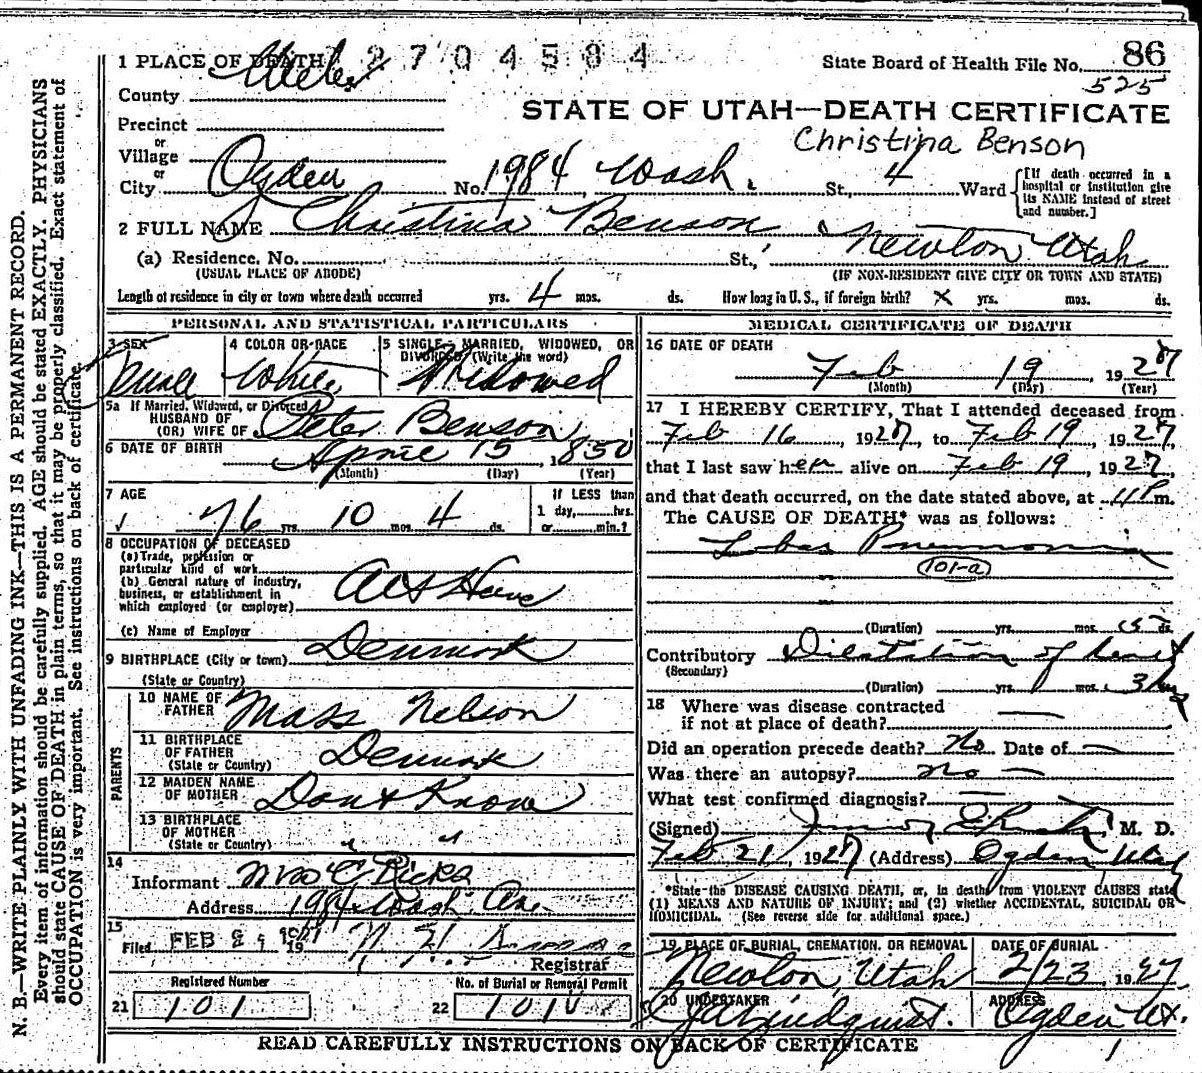 2704584
1 PLACE OF DEATH
State Board of Health File No. 86
525
County Weber
STATE OF UTAH—DEATH CERTIFICATE
Precinct
Christina Benson
or
Village
or
City Ogden No. 1984 Wash. St., 4 Ward
[If death occurred in a hospital or institution give its NAME instead of street and number.]
2 FULL NAME Christina Benson
(a) Residence. No. St., Newton Utah
(USUAL PLACE OF ABODE) (IF NON-RESIDENT GIVE CITY OR TOWN AND STATE)
Length of residence in city or town where death occurred yrs. 4 mos. ds. How long in U. S., if foreign birth? X yrs. mos. ds.
PERSONAL AND STATISTICAL PARTICULARS
3 SEX 4 COLOR OR RACE 5 SINGLE, MARRIED, WIDOWED, OR
DIVORCED (Write the word)
Female White Widowed
5a If Married, Widowed, or Divorced
HUSBAND OF
(OR) WIFE OF Peter Benson
6 DATE OF BIRTH April 15, 1850
(Month) (Day) (Year)
7 AGE If LESS than
76 yrs. 10 mos. 4 ds. 1 day, hrs.
or min.?
8 OCCUPATION OF DECEASED
(a) Trade, profession or
particular kind of work
(b) General nature of industry,
business, or establishment in
which employed (or employer) At Home
(c) Name of Employer
9 BIRTHPLACE (City or town) Denmark
(State or Country)
PARENTS
10 NAME OF
FATHER Mass Nelson
11 BIRTHPLACE
OF FATHER Denmark
(State or Country)
12 MAIDEN NAME
OF MOTHER Dont Know
13 BIRTHPLACE
OF MOTHER " "
(State or Country)
14
Informant Mrs C Ricks
Address 1984 Wash Ave
15
Filed FEB 19
Registrar
Registered Number No. of Burial or Removal Permit
21 101 22 101
MEDICAL CERTIFICATE OF DEATH
16 DATE OF DEATH
Feb 19, 1927
(Month) (Day) (Year)
17 I HEREBY CERTIFY, That I attended deceased from
Feb 16, 1927, to Feb 19, 1927,
that I last saw her alive on Feb 19, 1927,
and that death occurred, on the date stated above, at 11 P m.
The CAUSE OF DEATH* was as follows:
Lobar Pneumonia
101-a
(Duration) yrs. mos. 5 ds.
Contributory Dilatation of heart
(Secondary)
(Duration) yrs. mos. 3 hrs
18 Where was disease contracted
if not at place of death? —
Did an operation precede death? No Date of —
Was there an autopsy? no —
What test confirmed diagnosis? —
(Signed) M. D.
Feb 21, 1927 (Address) Ogden Utah
*State the DISEASE CAUSING DEATH, or, in deaths from VIOLENT CAUSES state
(1) MEANS AND NATURE OF INJURY; and (2) whether ACCIDENTAL, SUICIDAL OR
HOMICIDAL. (See reverse side for additional space.)
19 PLACE OF BURIAL, CREMATION, OR REMOVAL DATE OF BURIAL
Newton, Utah 2/23 1927.
20 UNDERTAKER ADDRESS
Lindquist. Ogden Ut.
READ CAREFULLY INSTRUCTIONS ON BACK OF CERTIFICATE
N. B.—WRITE PLAINLY WITH UNFADING INK—THIS IS A PERMANENT RECORD.
Every item of information should be carefully supplied. AGE should be stated EXACTLY. PHYSICIANS
should state CAUSE OF DEATH in plain terms, so that it may be properly classified. Exact statement of
OCCUPATION is very important. See instructions on back of certificate.